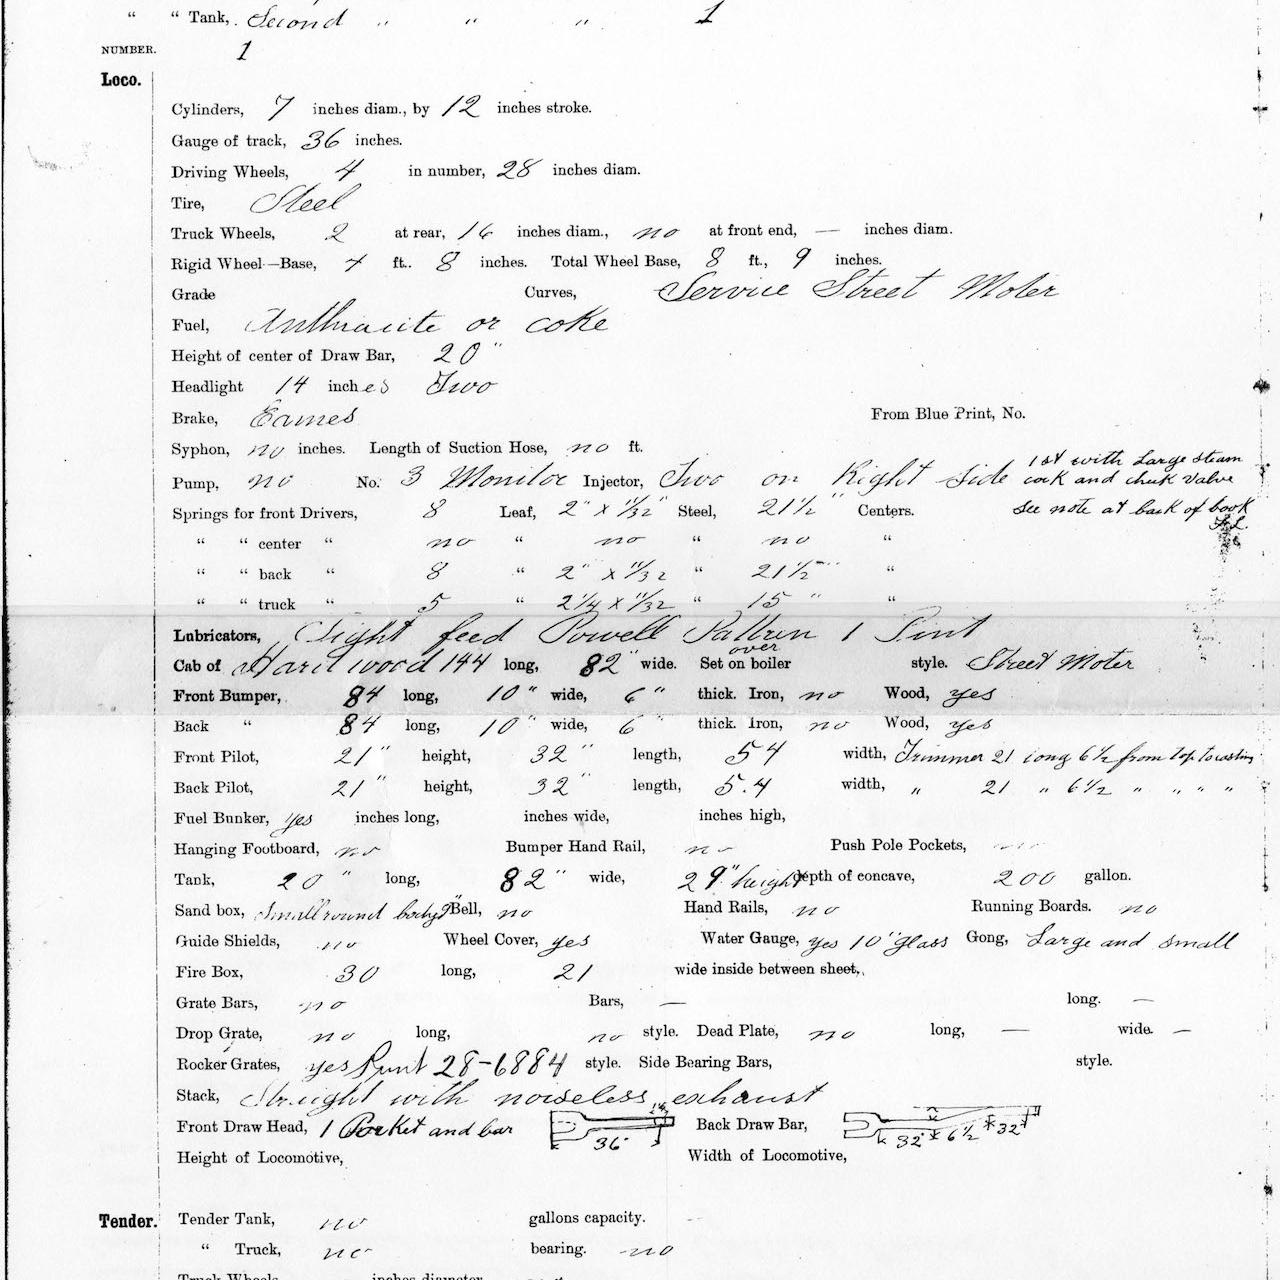 “ “ Tank, Second „ „ „ 1
NUMBER. 1
Loco.
Cylinders, 7 inches diam., by 12 inches stroke.
Gauge of track, 36 inches.
Driving Wheels, 4 in number, 28 inches diam.
Tire, Steel
Truck Wheels, 2 at rear, 16 inches diam., no at front end, — inches diam.
Rigid Wheel-Base, 4 ft.. 8 inches. Total Wheel Base, 8 ft., 9 inches.
Grade Curves, Service Street Moter
Fuel, Anthracite or coke
Height of center of Draw Bar, 20"
Headlight 14 inches Two
Brake, Eames From Blue Print, No.
Syphon, no inches. Length of Suction Hose, no ft.
Pump, no No. 3 Monitor Injector, Two on Right Side 1st with Large steam
cock and check valve
Springs for front Drivers, 8 Leaf, 2" x 11/32" Steel, 21½" Centers. see note at back of book
“ “ center “ no “ no “ no “
“ “ back “ 8 “ 2" x 11/32 “ 21½" “
“ “ truck “ 5 “ 2¼ x 11/32 “ 15" “
Lubricators, Sight feed Powell Pattren 1 Pint
Cab of Hard wood 144 long, 82" wide. Set on over boiler style. Street Moter
Front Bumper, 84 long, 10" wide, 6" thick. Iron, no Wood, yes
Back “ 84 long, 10" wide, 6" thick. Iron, no Wood, yes
Front Pilot, 21" height, 32" length, 54 width, Trimmer 21 long 6½ from top to casting
Back Pilot, 21" height, 32" length, 5.4 width, „ 21 „ 6½ „ „ „ „
Fuel Bunker, yes inches long, inches wide, inches high,
Hanging Footboard, no Bumper Hand Rail, no Push Pole Pockets, no
Tank, 20" long, 82" wide, 29" height depth of concave, 200 gallon.
Sand box, Small round body 9" Bell, no Hand Rails, no Running Boards. no
Guide Shields, no Wheel Cover, yes Water Gauge, yes 10" glass Gong, Large and small
Fire Box, 30 long, 21 wide inside between sheet.
Grate Bars, no Bars, — long. —
Drop Grate, no long, no style. Dead Plate, no long, — wide. —
Rocker Grates, yes Print 28-6884 style. Side Bearing Bars, style.
Stack, Straight with noiseless exhaust
Front Draw Head, 1 Pocket and bar 36" Back Draw Bar, 32" 6½ 32"
Height of Locomotive, Width of Locomotive,
Tender. Tender Tank, no gallons capacity.
“ Truck, no bearing. no
Truck Wheels inches diameter